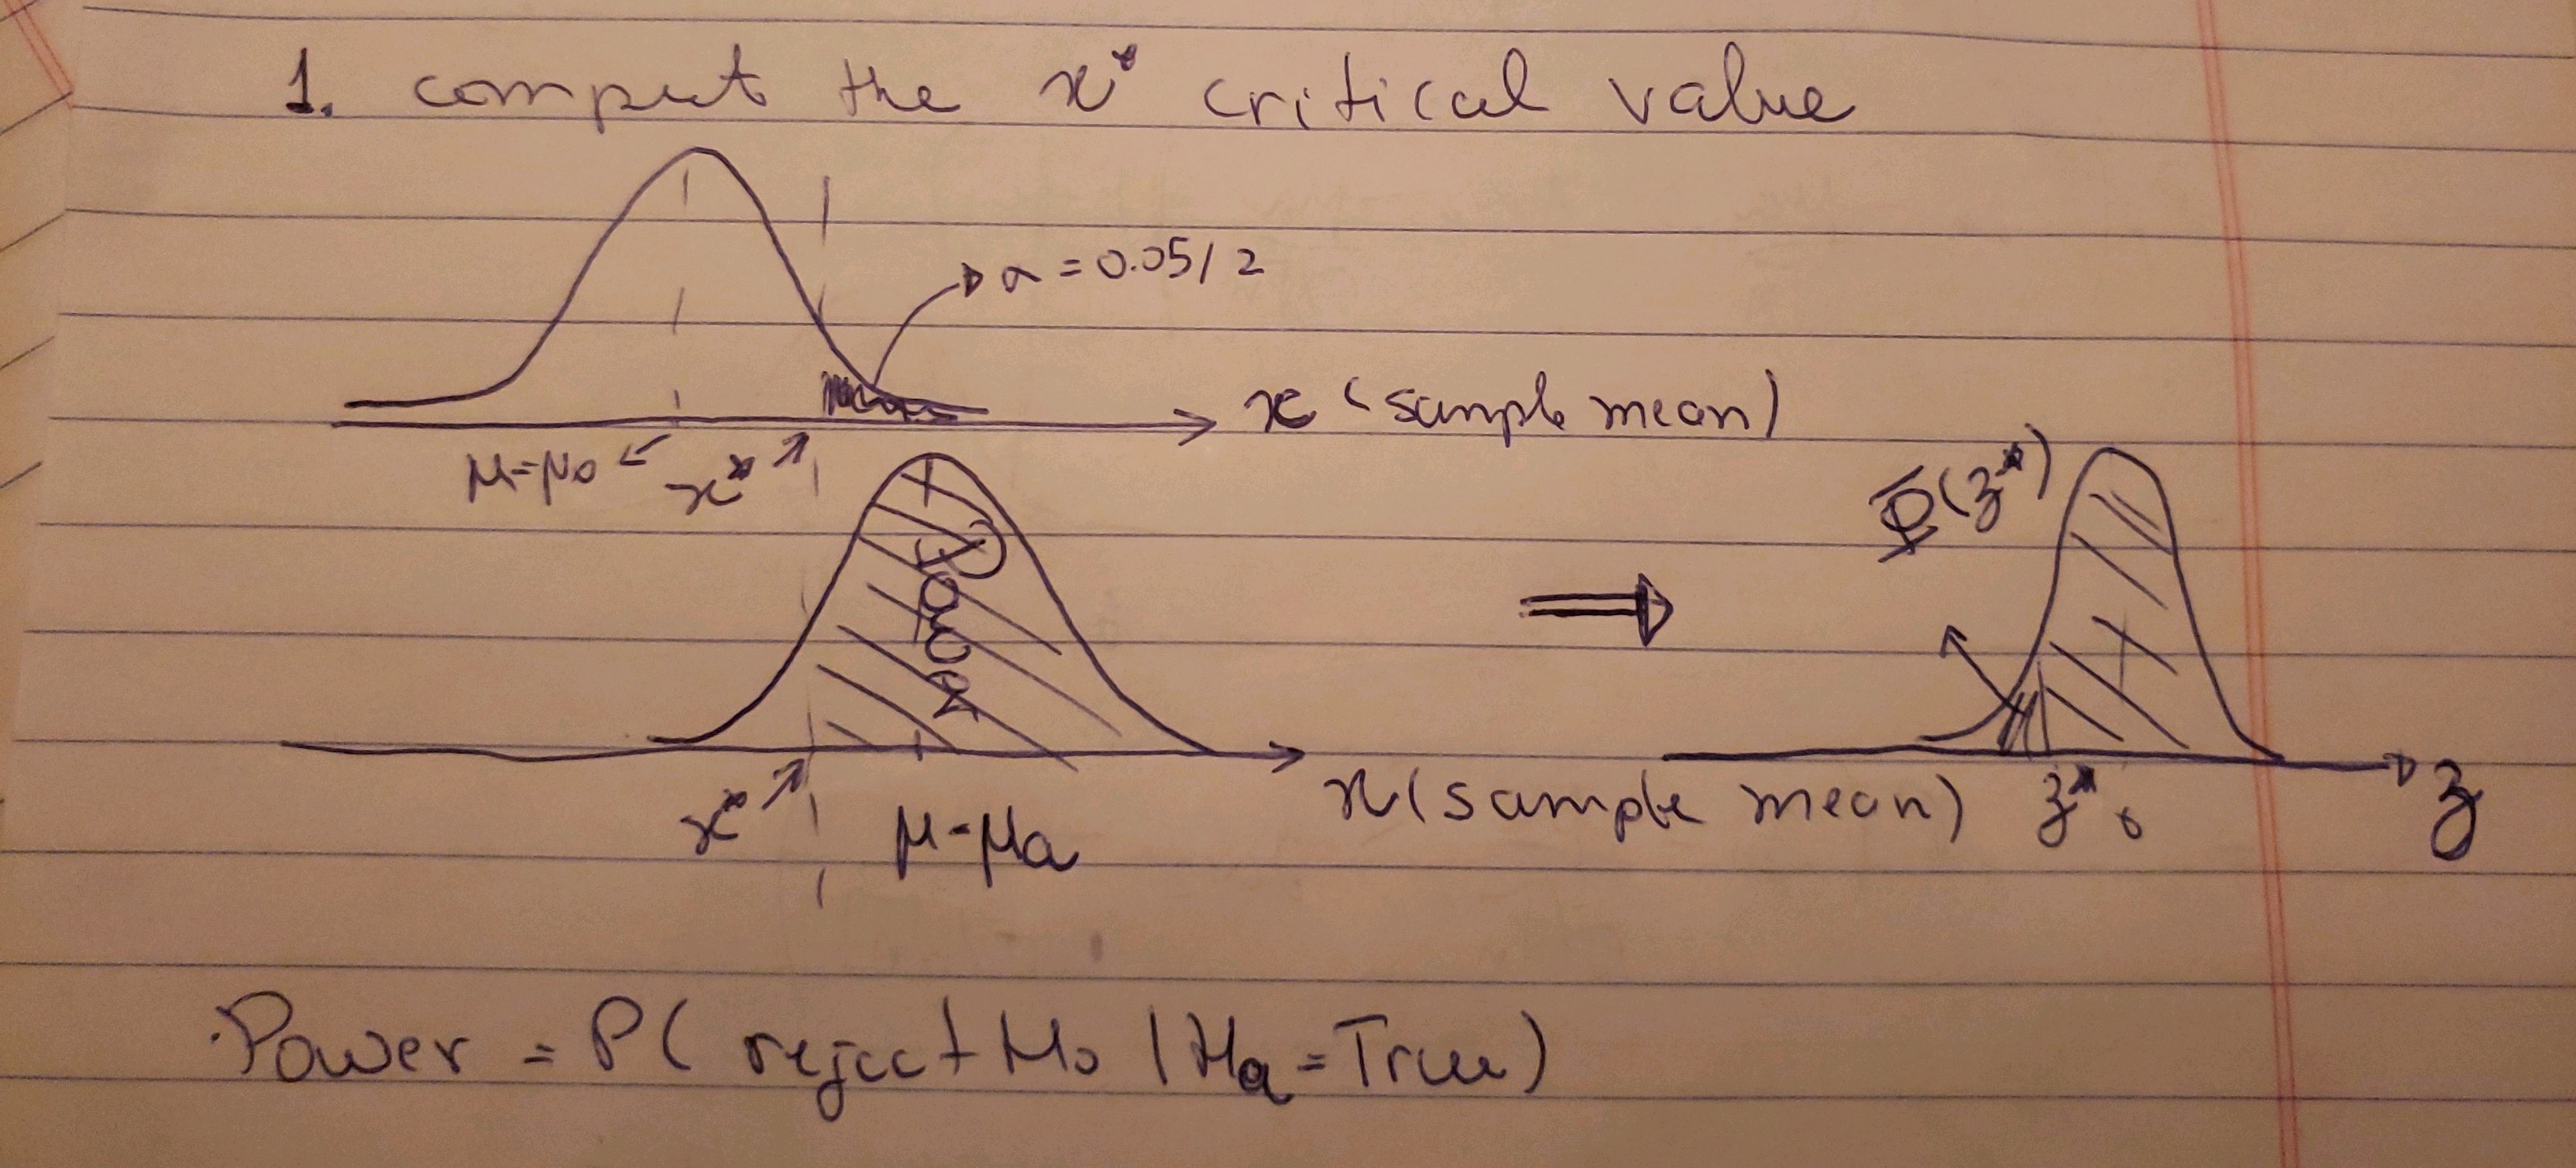 1. comput the x* critical value
α = 0.05/2
x (sample mean)
μ=μ₀ x*
Φ(z*)
Power
x* μ=μa x(sample mean) z* 0 z
Power = P( reject H₀ | Ha=True)